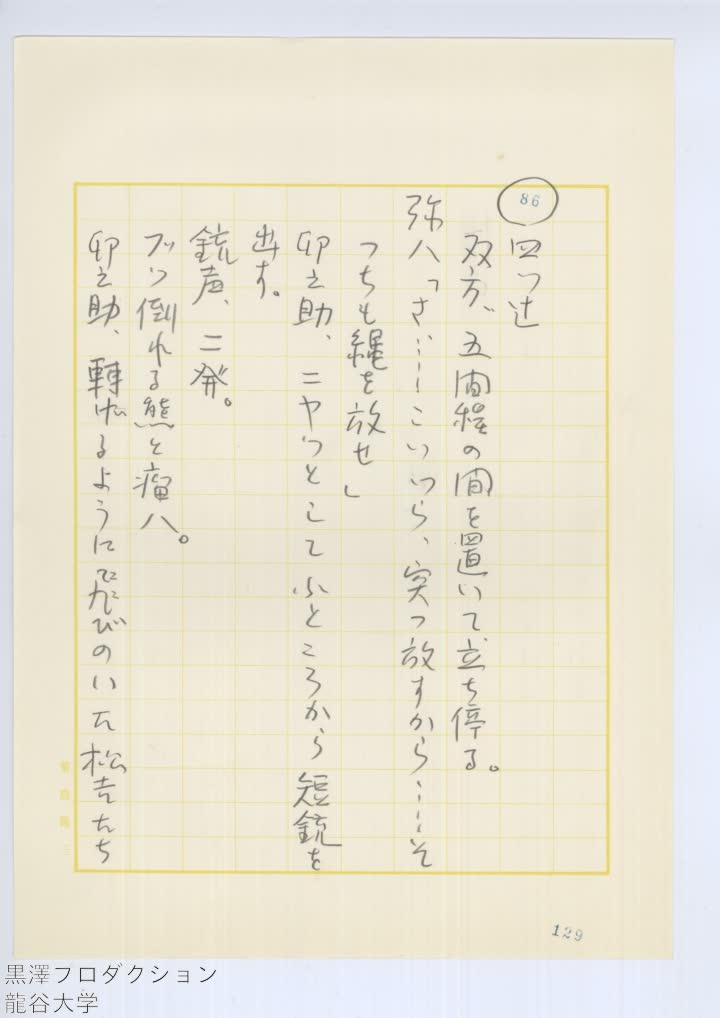 86
四つ辻
双方、五間程の間を置いて立ち停る。
弥八「さ……こいつら、突っ放すから……そ
っちも縄を放せ」
卯之助、ニヤッとしてふところから短銃を
出す。
銃声、二発。
ブッ倒れる熊と瘤八。
卯之助、轉げるように飛びのいた松吉たち
129
黒澤プロダクション
龍谷大学